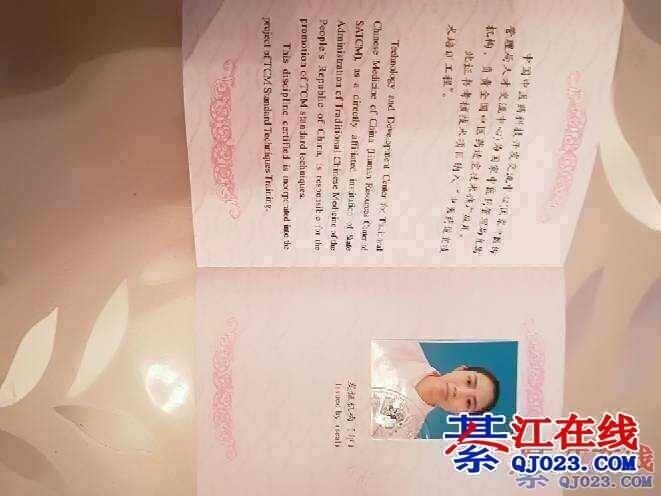 中国中医药科技开发交流中心(国家中医药
管理局人才交流中心)为国家中医药管理局直属
机构,负责全国中医药适宜技术推广项目。
此证书考核技术项目纳入“中医药适宜技
术培训工程”。
Technology and Development Center for Traditional
Chinese Medicine of China (Human Resources Center of
SATCM), as a directly affiliated institution of State
Administration of Traditional Chinese Medicine of the
People's Republic of China, is responsible for the
promotion of TCM standard techniques.
This discipline certified is incorporated into the
project of TCM Standard Techniques Training.
发证机构
Issued by (seal)
綦江在线
QJ023.COM